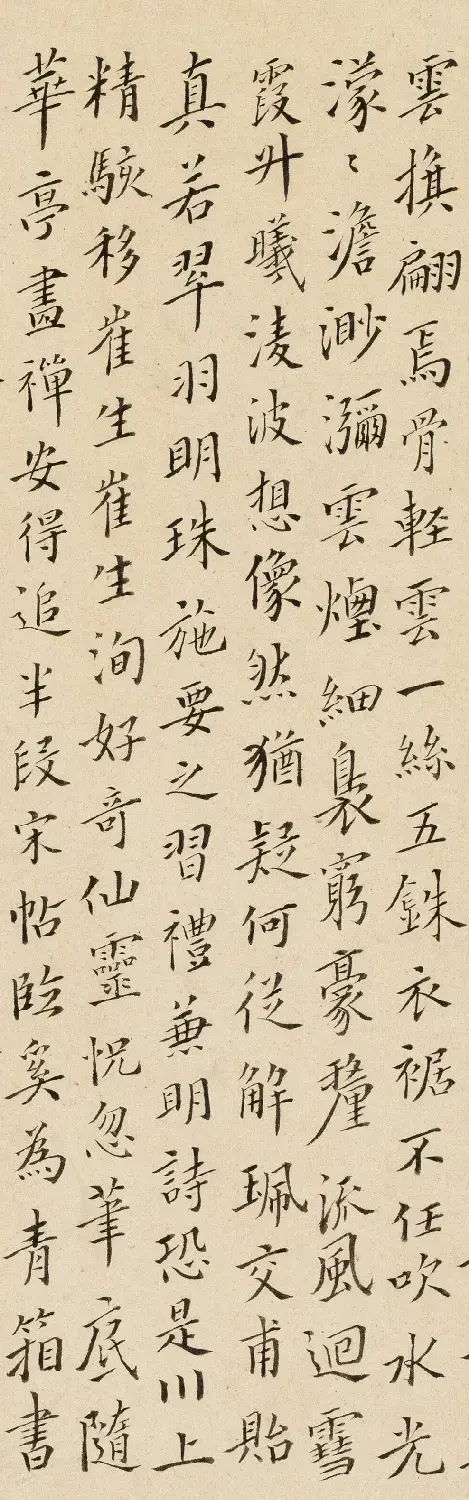 雲旗翩焉骨輕雲一絲五銖衣裾不任吹水光
濛〻澹渺瀰雲煙細裊窮豪釐流風迴雪
霞升曦淩波想像然猶疑何從解珮交甫貽
真若翠羽明珠施要之習禮兼明詩恐是川上
精駭移崔生崔生洵好奇仙靈怳忽筆底隨
華亭畫禪安得追半段宋帖臨奚為青箱書